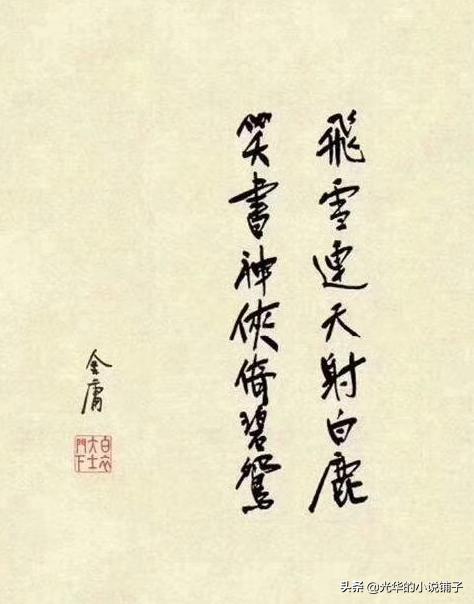 飛雪連天射白鹿
笑書神俠倚碧鴛
金庸
白衣大士門下
头条 @光华的小说铺子